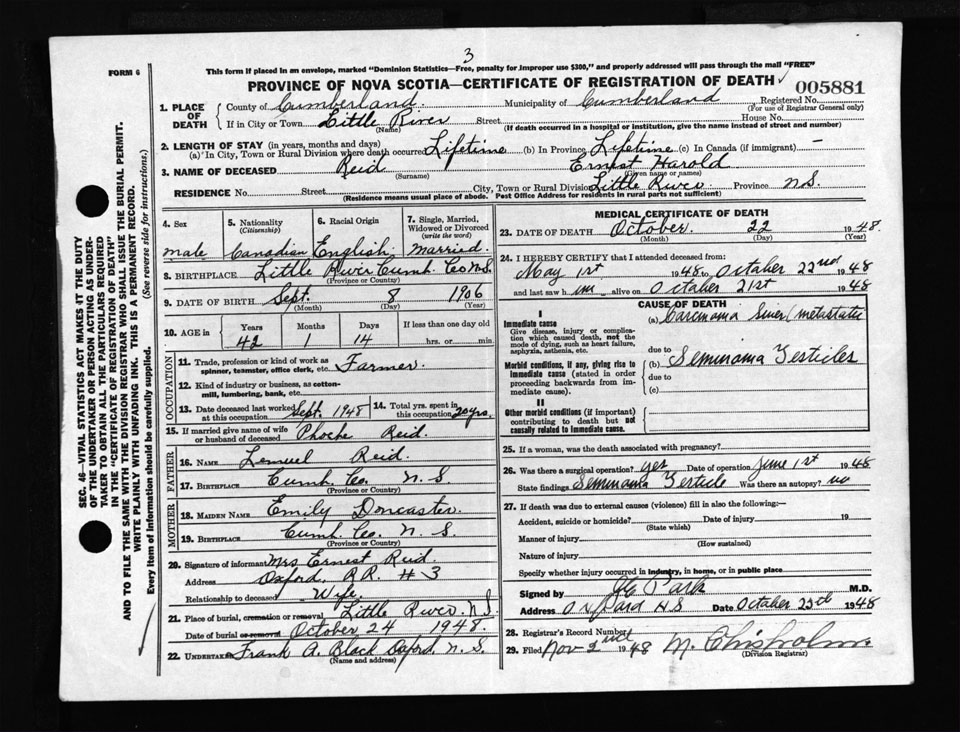 3
FORM 6
This form if placed in an envelope, marked "Dominion Statistics—Free, penalty for improper use $300," and properly addressed will pass through the mail "FREE"
PROVINCE OF NOVA SCOTIA—CERTIFICATE OF REGISTRATION OF DEATH
005881
1. PLACE OF DEATH
County of Cumberland Municipality of Cumberland Registered No.
(For use of Registrar General only)
If in City or Town Little River Street House No.
(Name) (If death occurred in a hospital or institution, give the name instead of street and number)
2. LENGTH OF STAY (in years, months and days)
(a) In City, Town or Rural Division where death occurred Lifetime (b) In Province Lifetime (c) In Canada (if immigrant) —
3. NAME OF DECEASED Reid Ernest Harold
(Surname) (Given name or names)
RESIDENCE No. Street City, Town or Rural Division Little River Province N.S.
(Residence means usual place of abode. Post Office Address for residents in rural parts not sufficient)
4. Sex male
5. Nationality (Citizenship) Canadian
6. Racial Origin English
7. Single, Married, Widowed or Divorced (write the word) Married
8. BIRTHPLACE Little River Cumb. Co. N.S.
(Province or Country)
9. DATE OF BIRTH Sept. 8 1906
(Month) (Day) (Year)
10. AGE in Years Months Days If less than one day old
42 1 14 hrs. or min.
OCCUPATION
11. Trade, profession or kind of work as spinner, teamster, office clerk, etc. Farmer.
12. Kind of industry or business, as cotton-mill, lumbering, bank, etc.
13. Date deceased last worked at this occupation Sept. 1948
14. Total yrs. spent in this occupation 20 yrs.
15. If married give name of wife or husband of deceased Phoebe Reid.
FATHER
16. NAME Lemuel Reid.
17. BIRTHPLACE Cumb. Co. N. S.
(Province or Country)
MOTHER
18. MAIDEN NAME Emily Doncaster
19. BIRTHPLACE Cumb. Co. N. S.
(Province or Country)
20. Signature of informant Mrs Ernest Reid.
Address Oxford, R.R. #3
Relationship to deceased Wife.
21. Place of burial, cremation or removal Little River. N.S.
Date of burial or removal October 24 1948.
22. Undertaker Frank A. Black Oxford N. S.
(Name and address)
MEDICAL CERTIFICATE OF DEATH
23. DATE OF DEATH October 22 1948.
(Month) (Day) (Year)
24. I HEREBY CERTIFY that I attended deceased from:
May 1st 1948 to October 22nd 1948
and last saw him alive on October 21st 1948
CAUSE OF DEATH
I
Immediate cause
Give disease, injury or complication which caused death, not the mode of dying, such as heart failure, asphyxia, asthenia, etc.
(a) Carcinoma Liver (metastatic
due to
Morbid conditions, if any, giving rise to immediate cause (stated in order proceeding backwards from immediate cause).
(b) Seminoma Testicles
due to
(c)
II
Other morbid conditions (if important) contributing to death but not causally related to immediate cause.
25. If a woman, was the death associated with pregnancy?
26. Was there a surgical operation? yes Date of operation June 1st 1948
State findings Seminoma Testicle Was there an autopsy? no
27. If death was due to external causes (violence) fill in also the following:
Accident, suicide or homicide? Date of injury 19
(State which)
Manner of injury
(How sustained)
Nature of injury
Specify whether injury occurred in industry, in home, or in public place
Signed by Park M.D.
Address Oxford N S Date October 25th 1948
28. Registrar's Record Number
29. Filed Nov 2 1948 M. Chisholm
(Division Registrar)
SEC. 46—VITAL STATISTICS ACT MAKES IT THE DUTY
OF THE UNDERTAKER OR PERSON ACTING AS UNDER-
TAKER TO OBTAIN ALL THE PARTICULARS REQUIRED
IN THE "CERTIFICATE OF REGISTRATION OF DEATH"
AND TO FILE THE SAME WITH THE DIVISION REGISTRAR WHO SHALL ISSUE THE BURIAL PERMIT.
WRITE PLAINLY WITH UNFADING INK. THIS IS A PERMANENT RECORD.
Every item of Information should be carefully supplied. (See reverse side for instructions.)